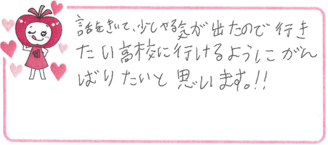 話をきいて、少しやる気が出たので行き
たい高校に行けるようにがん
ばりたいと思います。!!